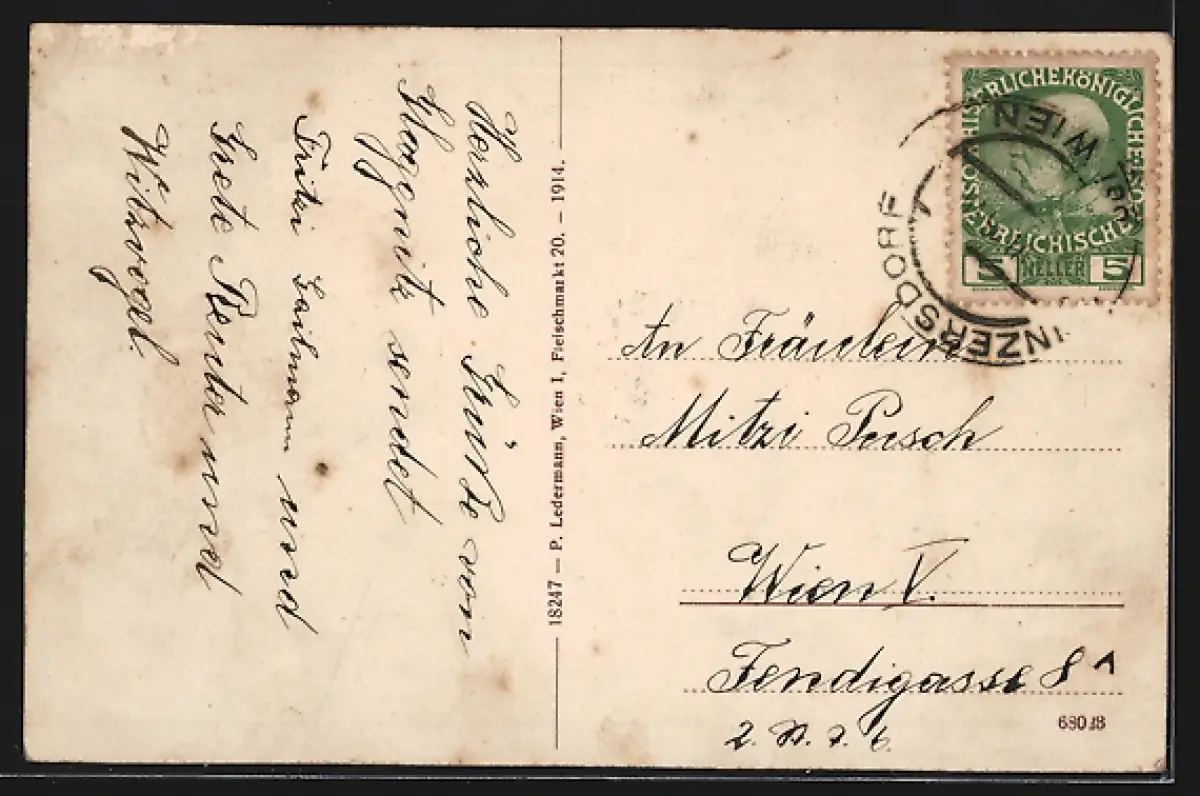 Herzliche Grüße von
Gloggnitz sendet
Fritzi und
Grete und
Witzvogel.
18247 — P. Ledermann, Wien I, Fleischmarkt 20. – 1914.
KAISERLICHE KÖNIGLICHE
ÖSTERREICHISCHE
5 HELLER 5
WIEN
INZERSDORF
An Fräulein
Mitzi Pusch
Wien V.
Fendigasse 8
680